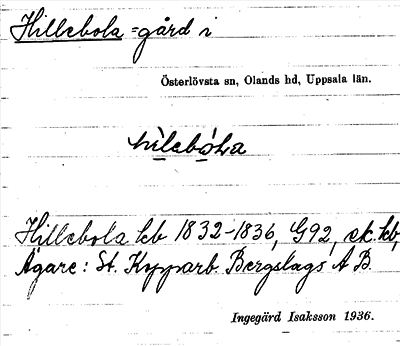 Hillebola = gård i
Österlövsta sn, Olands hd, Uppsala län.
Hillebola kb 1832-1836, G92, sk. kb,
Ägare: St. Kopparb. Bergslags A B.
Ingegärd Isaksson 1936.